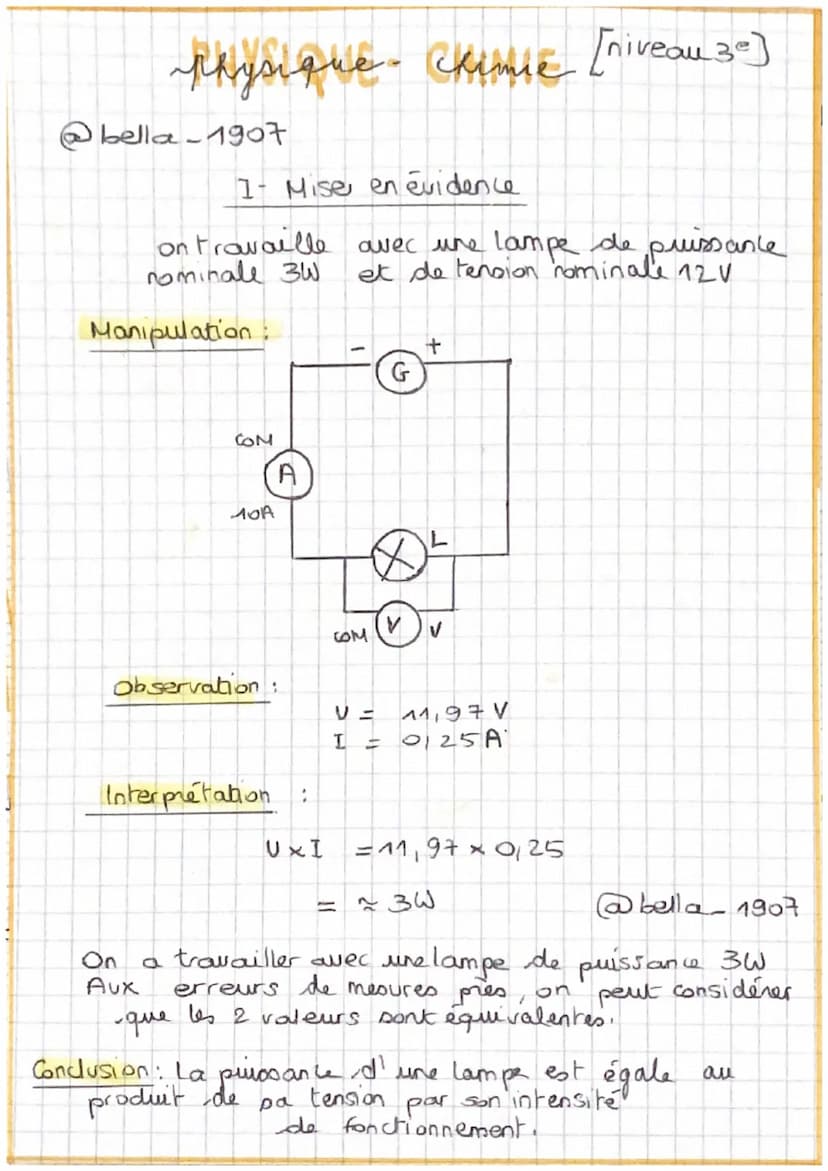 Physique - Chimie [niveau 3e]
@bella_1907
I- Mise en évidence
on travaille avec une lampe de puissance
nominale 3W et de tension nominale 12V
Manipulation :
- +
G
COM
A
10A
L
COM V V
Observation :
U = 11,97 V
I = 0,25 A
Interprétation :
U x I = 11,97 x 0,25
= ≈ 3W
@bella_1907
On a travailler avec une lampe de puissance 3W
Aux erreurs de mesures près, on peut considérer
que les 2 valeurs sont équivalentes.
Conclusion : La puissance d'une lampe est égale au
produit de sa tension par son intensité
de fonctionnement.